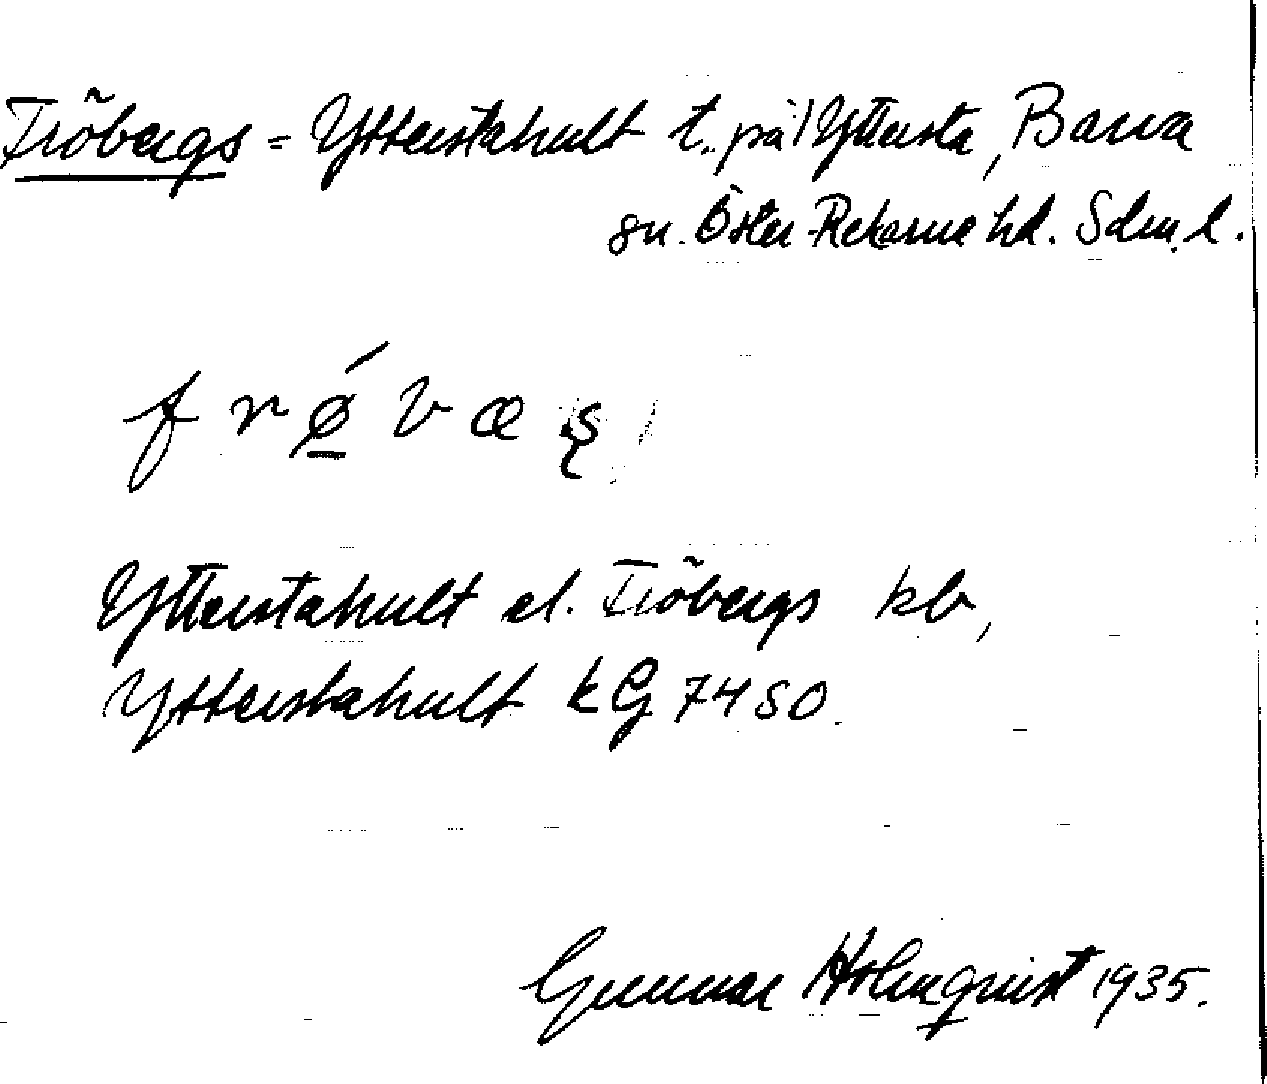 Fröbergs = Ytterstahult t. på Yttersta, Barva
sn. Öster-Rekarne hd. Sdm. l.
f r ǿ v æ ʂ
Ytterstahult el. Fröbergs kb,
Ytterstahult kG 7450.
Gunnar Holmqvist 1935.